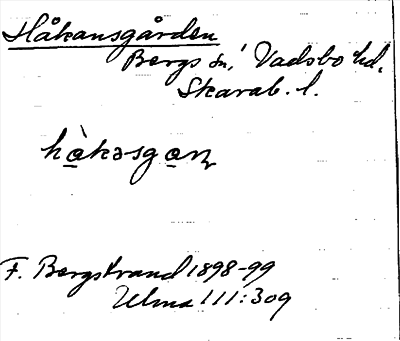 Håkansgården
Bergs sn, Vadsbo hd.
Skarab. l.
hà̱kəsga̱ɳ
F. Bergstrand 1898-99
Ulma 111:309